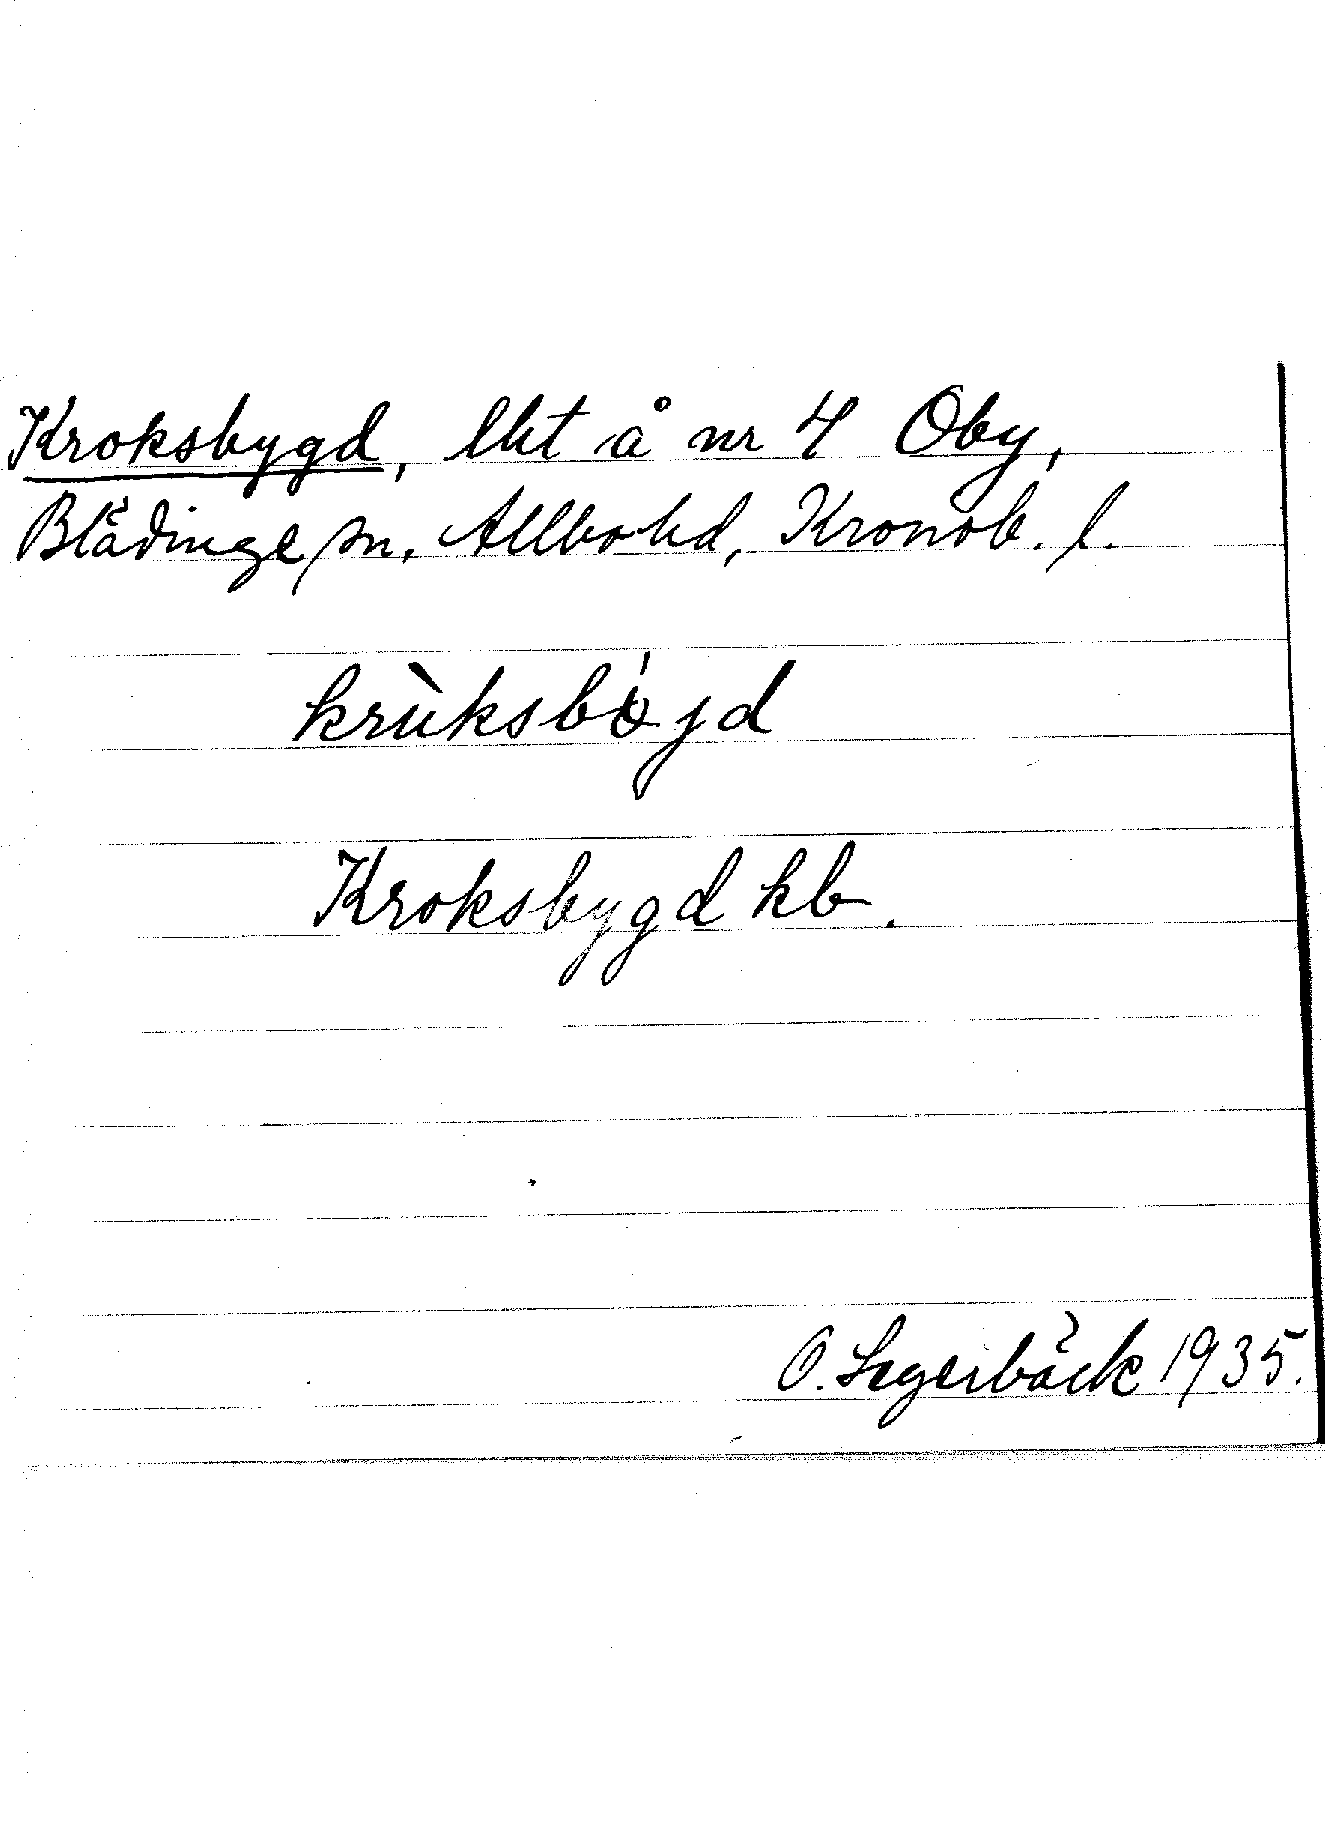 Kroksbygd, lht å nr 4 Oby,
Blädinge sn, Allbo hd, Kronob. l.
krùksbýjd
Kroksbygd kb.
O. Segerbäck 1935.